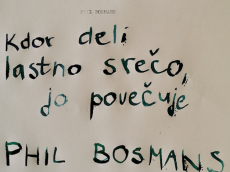 Kdor deli
lastno srečo,
jo povečuje
PHIL BOSMANS